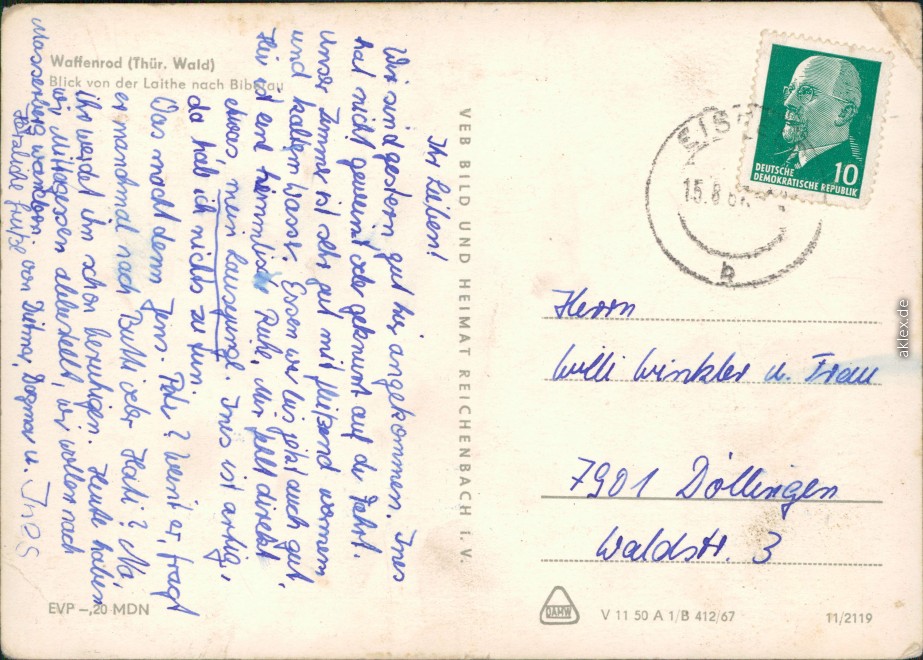 Waffenrod (Thür. Wald)
Blick von der Laithe nach Biberau
Ihr Lieben!
Wir sind gestern gut hier angekommen. Ines
hat nicht geweint oder gebrummt auf der Fahrt.
Unser Zimmer ist sehr gut mit fließend warmen
und kaltem Wasser. Essen war bis jetzt auch gut.
Hier ist eine himmlische Ruh, mir fehlt direkt
etwas, mein Lausejunge. Ines ist artig,
da hab ich nichts zu tun.
Was macht denn Jens-Peter? Weint er, fragt
er manchmal nach Butti oder Hati? Na
ihr werdet ihn schon beruhigen. Heute haben
wir Mittagessen abbestellt, wir wollen nach
Masserberg wandern.
Herzliche Grüße von Dietmar, Dagmar u. Ines
VEB BILD UND HEIMAT REICHENBACH I. V.
DEUTSCHE
DEMOKRATISCHE REPUBLIK
10
EISF
15.8.67
b
Herrn
Willi Winkler u. Frau
7901 Döllingen
Waldstr. 3
EVP –,20 MDN
DAHW
V 11 50 A 1/B 412/67
11/2119
aklex.de